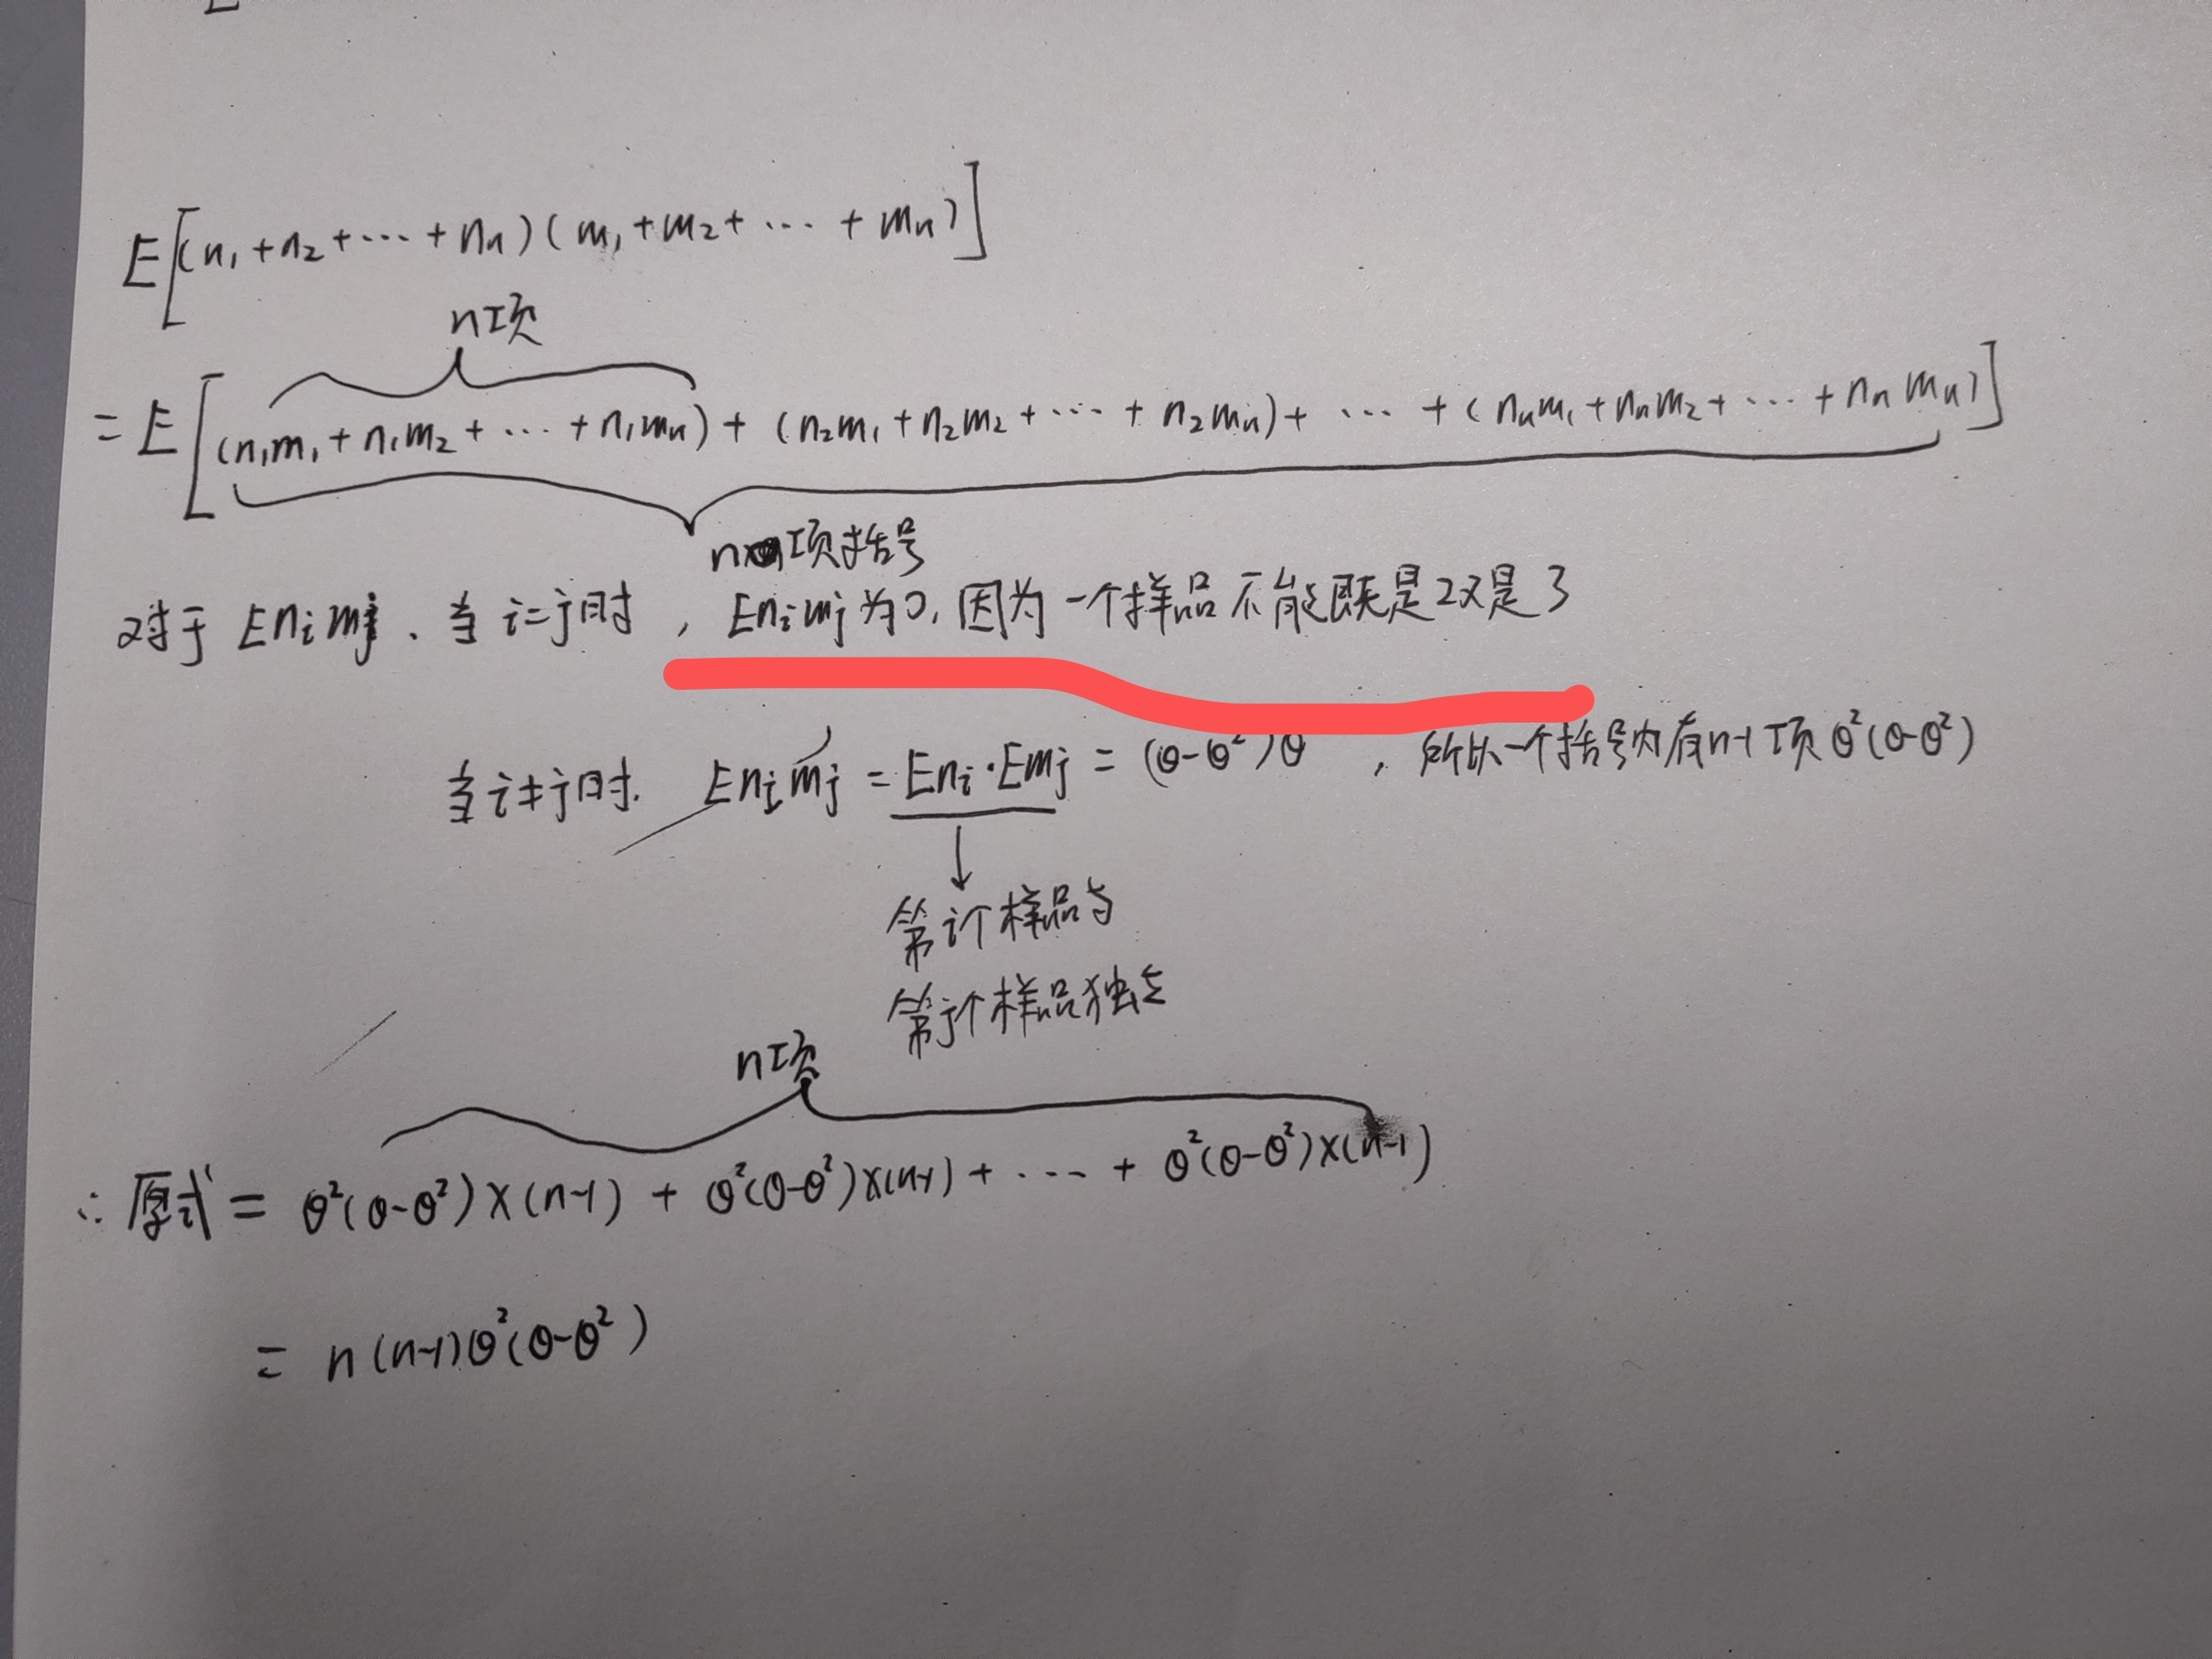 E[(n₁+n₂+⋯+nₙ)(m₁+m₂+⋯+mₙ)]
n项
=E[(n₁m₁+n₁m₂+⋯+n₁mₙ)+(n₂m₁+n₂m₂+⋯+n₂mₙ)+⋯+(nₙm₁+nₙm₂+⋯+nₙmₙ)]
n项括号
对于Enᵢmⱼ、当i=j时,Enᵢmⱼ为0,因为一个样品不能既是2又是3
当i≠j时. Enᵢmⱼ=Enᵢ·Emⱼ=(θ-θ²)θ,所以一个括号内有n-1项θ²(θ-θ²)
第i个样品与
第j个样品独立
n项
∴原式=θ²(θ-θ²)×(n-1)+θ²(θ-θ²)×(n-1)+⋯+θ²(θ-θ²)×(n-1)
=n(n-1)θ²(θ-θ²)